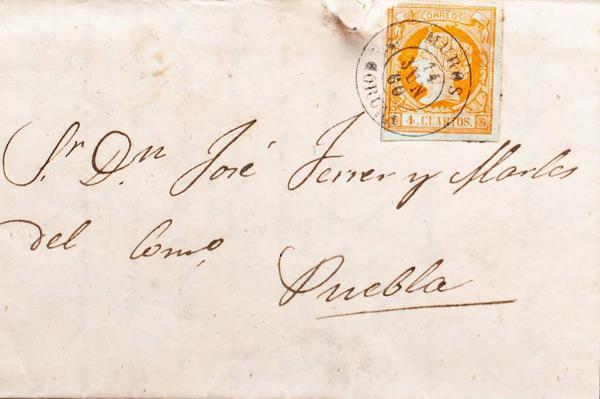 CORREOS
4. CUARTOS.
MUROS
14
JUN
60
Sr. Dn José Ferrer y Martes
del Como
Puebla